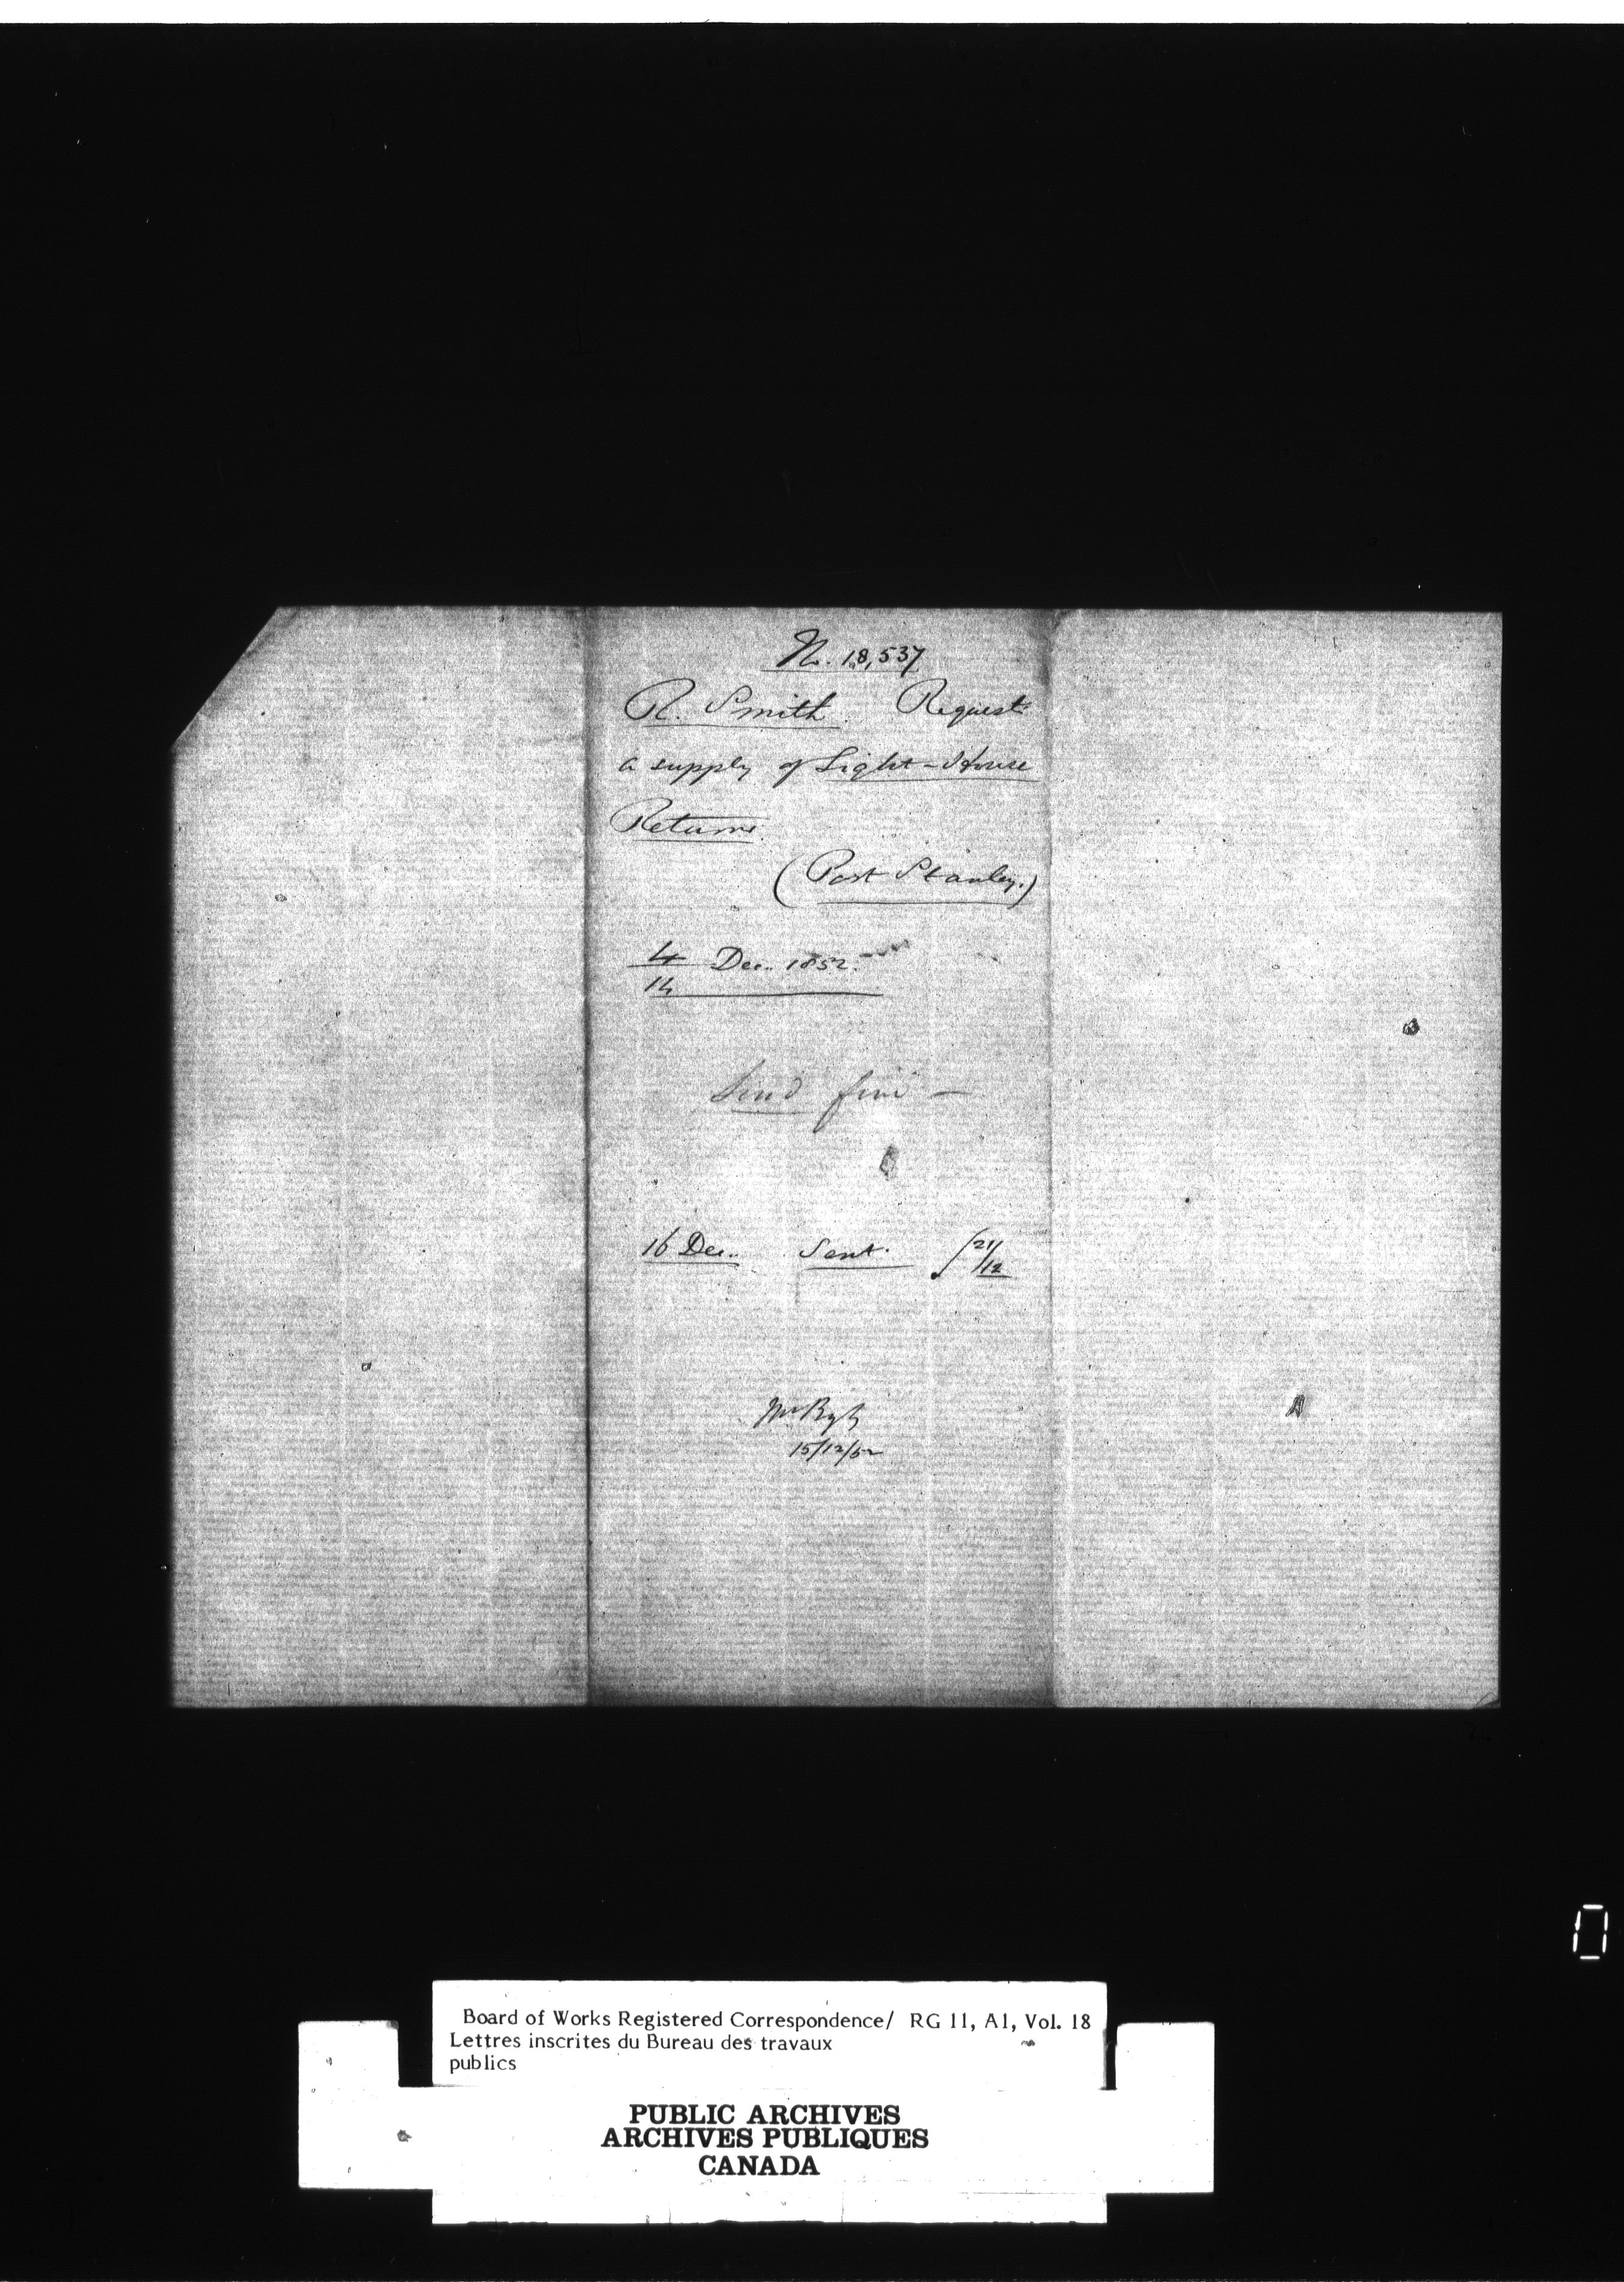 No. 18,537
R. Smith. Requests
a supply of Light-House
Returns.
(Port Stanley.)
4 Dec. 1852.
14
Send five —
16 Dec. Sent. 21/12
15/12/52
0
Board of Works Registered Correspondence/ RG 11, A1, Vol. 18
Lettres inscrites du Bureau des travaux
publics
PUBLIC ARCHIVES
ARCHIVES PUBLIQUES
CANADA